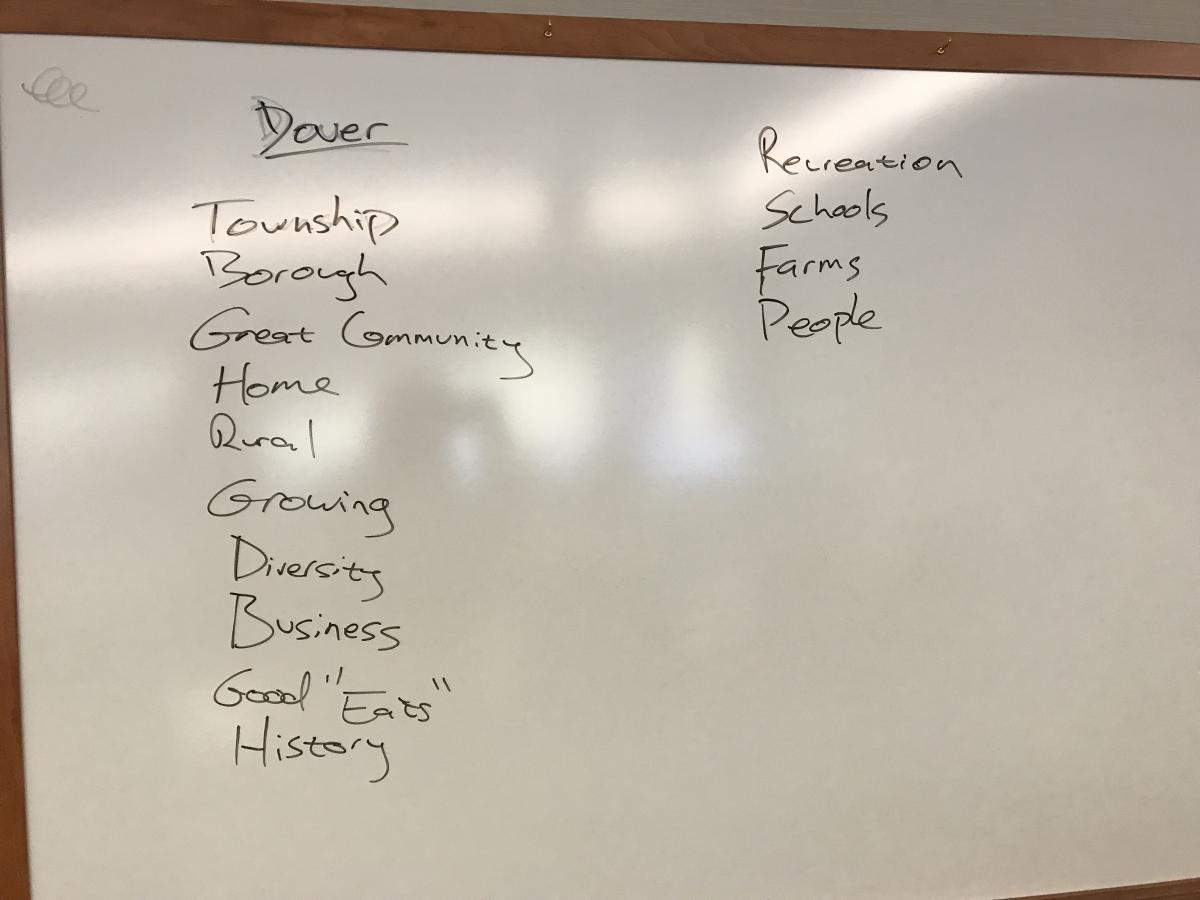 Dover
Township
Borough
Great Community
Home
Rural
Growing
Diversity
Business
Good "Eats"
History
Recreation
Schools
Farms
People